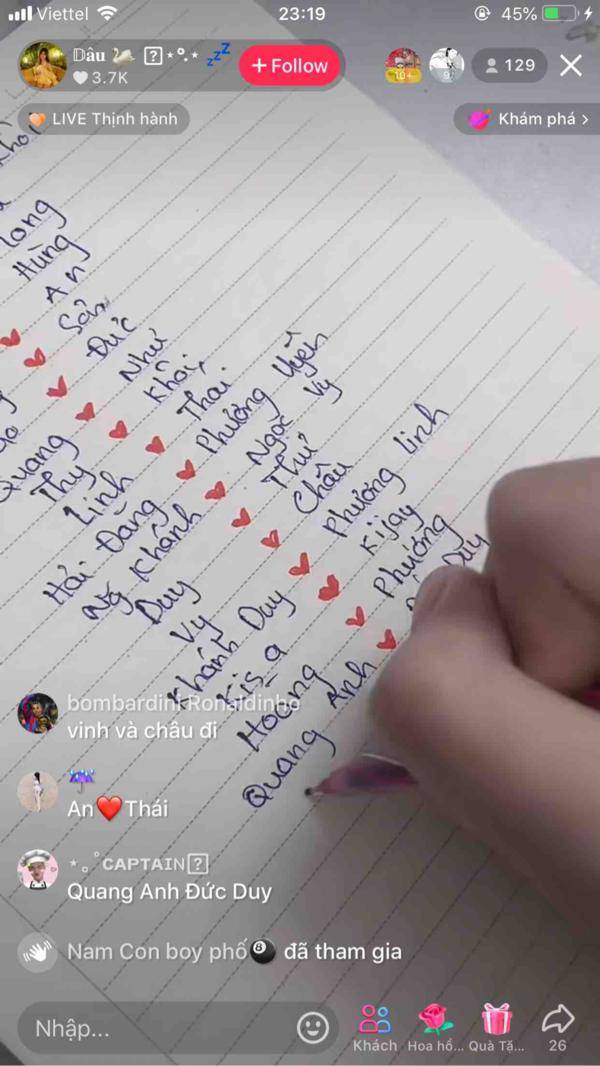 Viettel 23:19 45%
Dâu
3.7K
+ Follow
10+
129
LIVE Thịnh hành
Khám phá >
Long
Hùng
An
Sản
Đức
Như
Quang ♥ Khôi
Thy ♥ Thai
Linh ♥ Phương Uyên
Hải Đăng ♥ Ngọc Vy
Ng Khánh ♥ Thư
Duy ♥ Châu
Vy ♥ Phương Linh
Khánh Duy ♥ Kijay
Kis a ♥ Phương
Hoàng ♥ Duy
Quang Anh
bombardini Ronaldinho
vinh và châu đi
An❤️Thái
CAPTAIN
Quang Anh Đức Duy
Nam Con boy phố🎱 đã tham gia
Nhập...
Khách
Hoa hồ...
Quà Tặ...
26